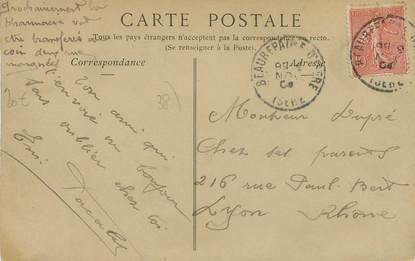 Prochainement la
Pharmacie va
être transférée au
coin de la rue
CARTE POSTALE
Tous les pays étrangers n'acceptent pas la correspondance au recto.
(Se renseigner à la Poste).
Correspondance
Adresse
Ton ami qui
t'envoie un bonjour
sans oublier chez toi
Em.
BEAUREPAIRE D'ISERE
NOV
04
ISERE
Monsieur Dupré
Chez ses parents
216 rue Paul-Bert
Lyon Rhône